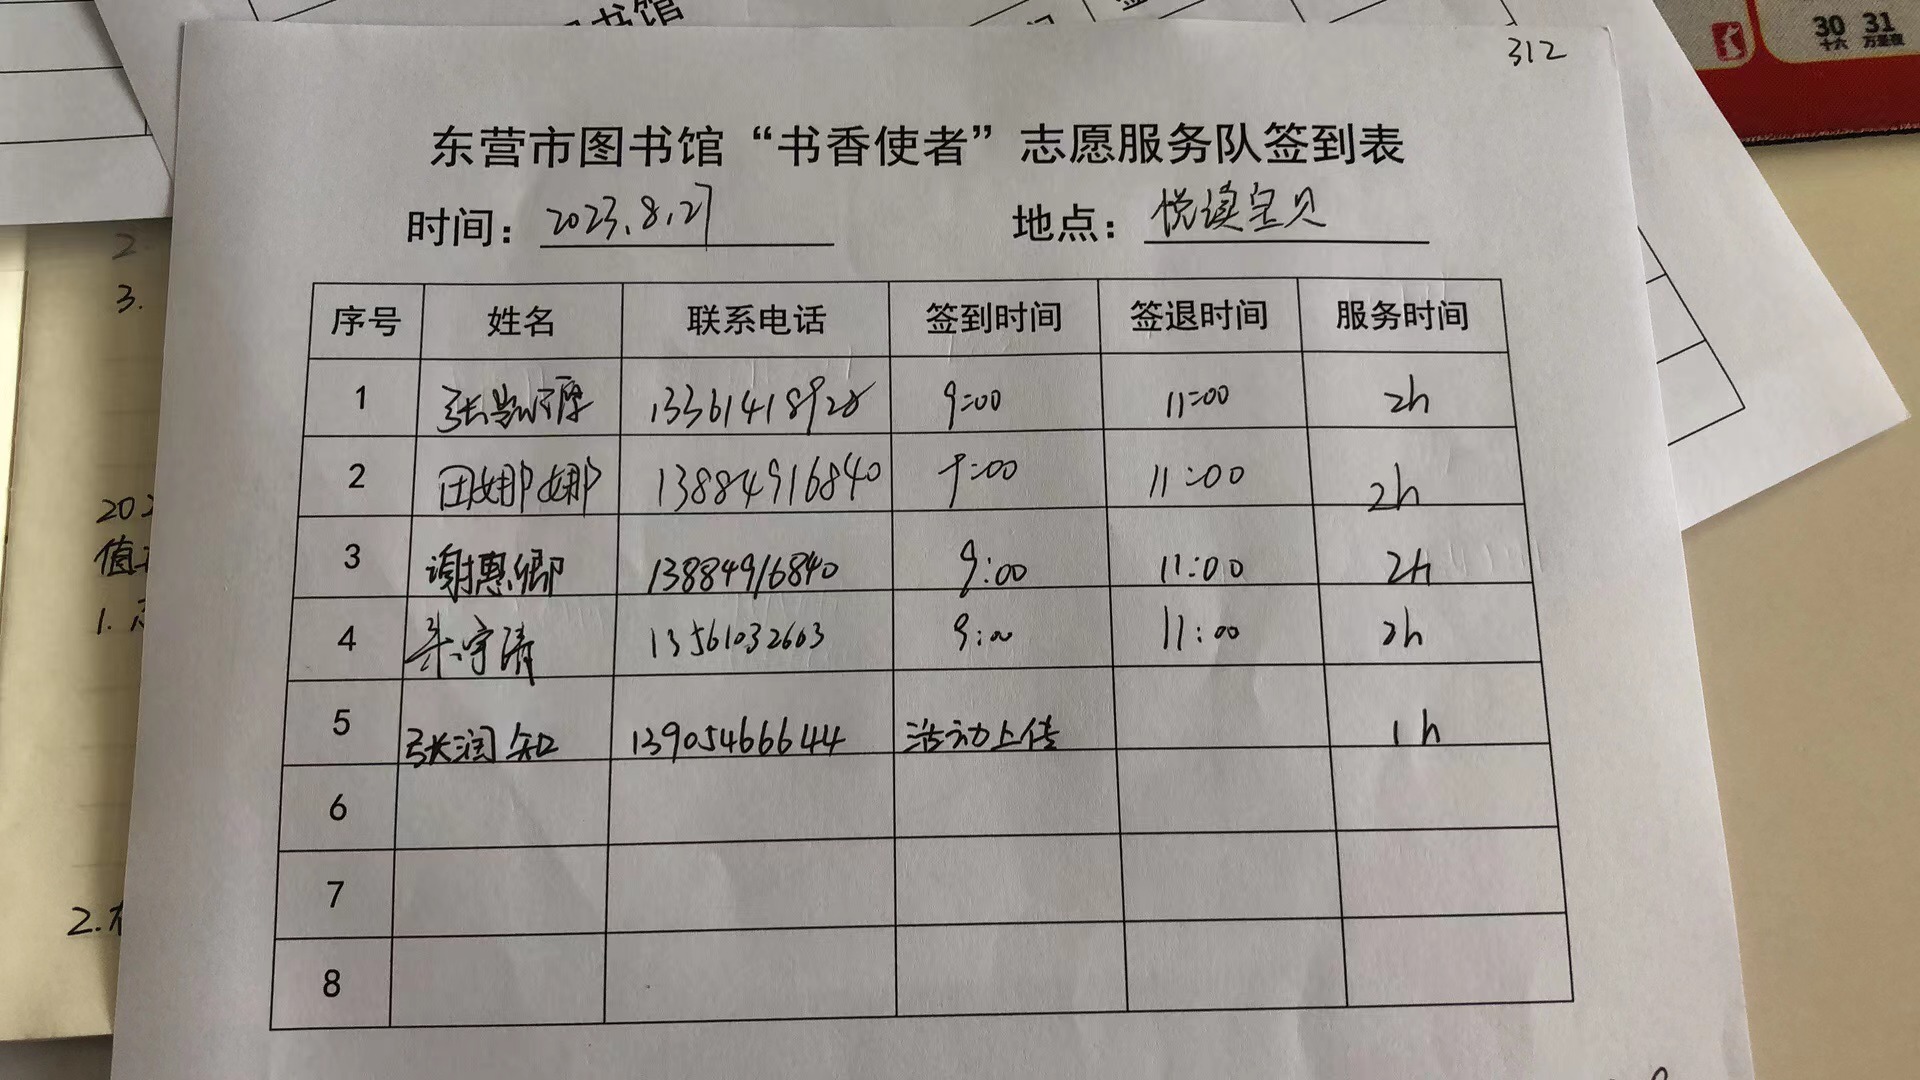 书馆
30 31
十六 万圣夜
312
东营市图书馆“书香使者”志愿服务队签到表
时间: 2023.8.27 地点: 悦读宝贝
序号 姓名 联系电话 签到时间 签退时间 服务时间
1 张 13361418928 9:00 11:00 2h
2 田娜娜 13884916840 9:00 11:00 2h
3 谢惠卿 13884916840 9:00 11:00 2h
4 宇清 13561032603 9:00 11:00 2h
5 张润知 13905466644 活动上传 1h
6
7
8
2
3.
202
值
1.
2.